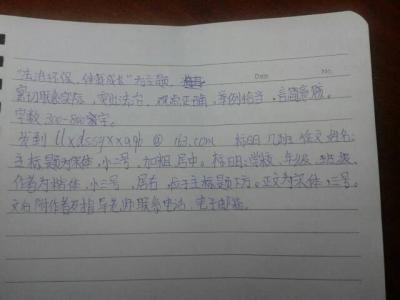 Date No.
"法治环保、伴我成长"为主题,
密切联系实际,突出法治,观点正确,举例恰当,言简意赅。
字数 300-800字。
发到 llxdssyxxqyb @ 163.com 标明 几班 征文 姓名;
主标题为宋体,小二号,加粗,居中。标明:学校、年级、班级、
作者为楷体,小三号,居右,位于主标题下方。正文为宋体,三号。
文后附作者及指导老师联系电话、电子邮箱。